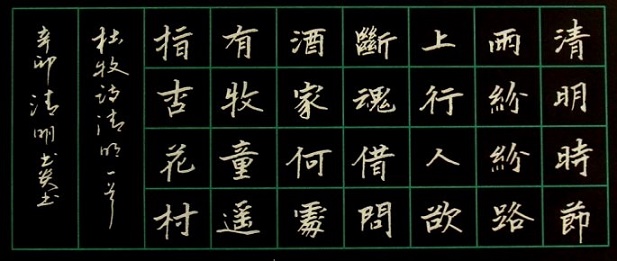 清明時節
雨紛紛路
上行人欲
斷魂借問
酒家何處
有牧童遥
指杏花村
杜牧诗清明一首
辛卯清明书